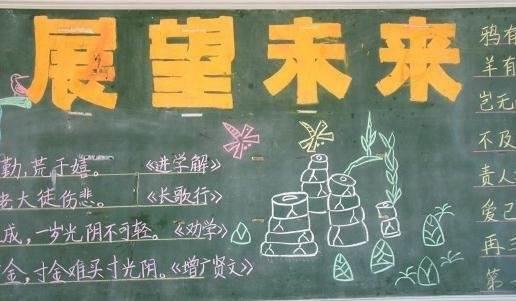 展望未来
勤,荒于嬉。 《进学解》
大徒伤悲。 《长歌行》
成，一岁光阴不可轻。《劝学》
金,寸金难买寸光阴。《增广贤文》
鸦有
羊有
岂无
不及
责人
爱己
再三
第一